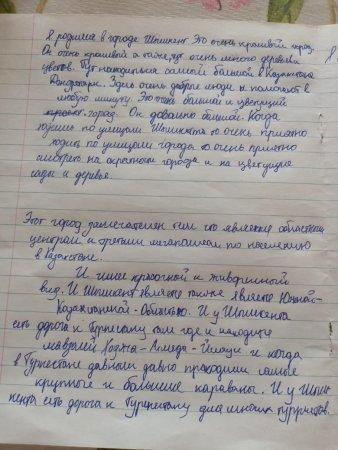 Я родилась в городе Шымкент. Это очень красивый город.
Он очень красивый а также, тут очень много деревьев
цветов. Тут находиться самый большой в Казахстане
Дендропарк. Здесь очень добрые люди и помогают в
любую минуту. Это очень большой и цветущий
город. Он довольно большой. Когда
ходишь по улицам Шымкента то очень приятно
ходить по улицам города то очень приятно
смотреть на окраины города и на цветущие
сады и деревья.
Этот город замечателен тем что является областным
центром и третьим мегаполисом по населению
в Казахстане.
И имее красочный и живописный
вид. И Шымкент является также является Южной-
Казахстанской-Областью. И у Шымкента
есть дорога к Туркестану там где и находится
мавзолей Ходжа-Ахмеда-Йасауи и когда
в Туркестане давным давно проходили самые
крупные и большие караваны. И у Шым-
кента есть дорога к Туркестану для многих туристов.